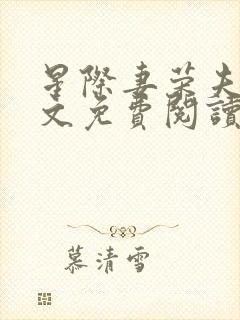 星際妻荣夫
文免費閱讀
慕清雪